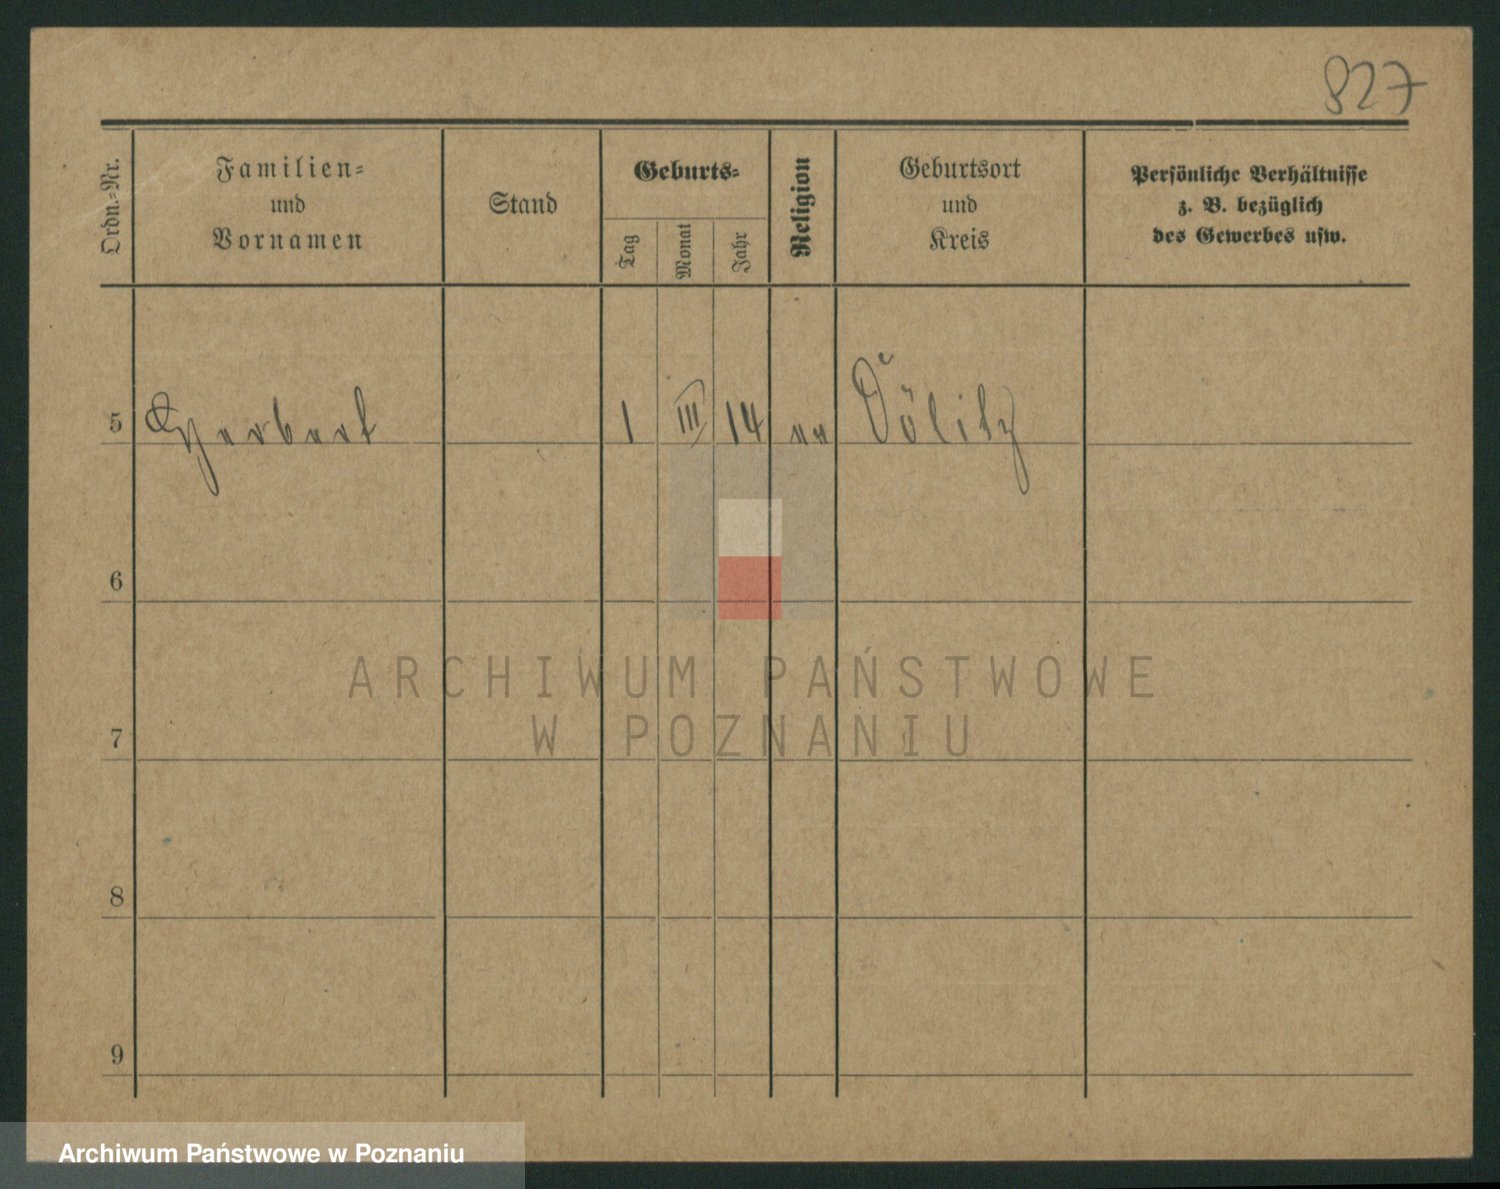 827
Ordn.-Nr.
Familien-
und
Vornamen
Stand
Geburts-
Tag
Monat
Jahr
Religion
Geburtsort
und
Kreis
Persönliche Verhältnisse
z. B. bezüglich
des Gewerbes usw.
5 Herbert 1 III 14 Dölitz
6
7
8
9
ARCHIWUM PAŃSTWOWE
W POZNANIU
Archiwum Państwowe w Poznaniu